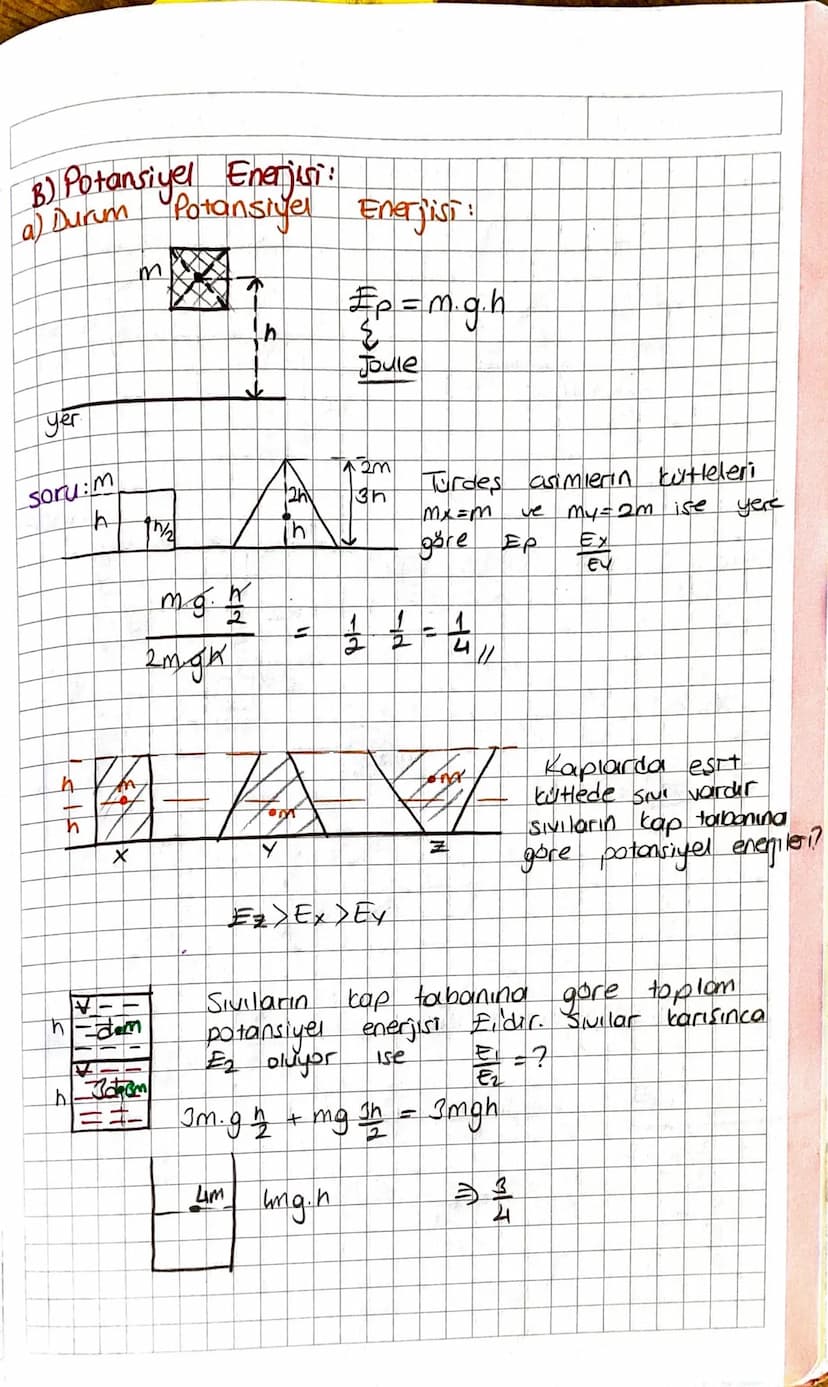 B) Potansiyel Enerjisi:
a) Durum Potansiyel Enerjisi:
m
h
Ep = m.g.h
Joule
yer
soru: m
h
h/2
2h
h
2m
3h
Türdeş cisimlerin kütleleri
mx=m ve my=2m ise yere
göre Ep Ex/Ey
mg.h/2 / 2mgh = 1/2 . 1/2 = 1/4 //
h
h
m
m
m
X
Y
Z
Kaplarda eşit
kütlede sıvı vardır
sıvıların kap tabanına
göre potansiyel enerjileri?
Ez > Ex > Ey
h
V
h
V
Sıvıların kap tabanına göre toplam
potansiyel enerjisi E₁'dir. Sıvılar karışınca
E₂ oluyor ise E₁/E₂ = ?
3m.g h/2 + mg 3h/2 = 3mgh
4m
4mg.h
⇒ 3/4